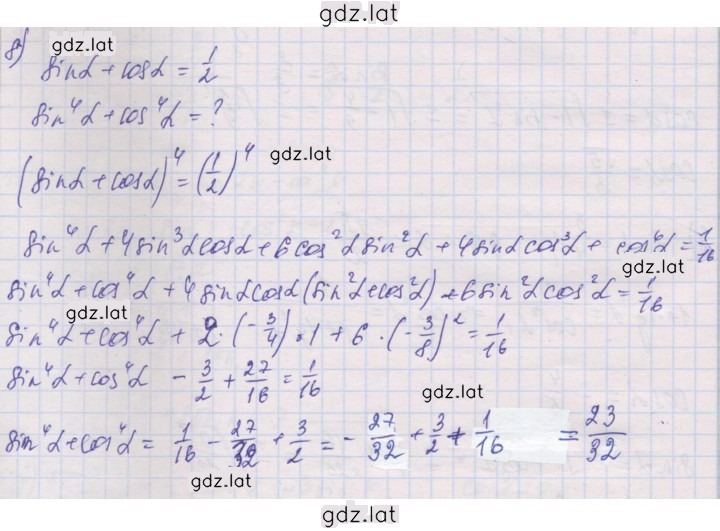 gdz.lat
gdz.lat
8)
sinα + cosα = 1/2
sin⁴α + cos⁴α = ?
gdz.lat
(sinα + cosα)⁴ = (1/2)⁴
sin⁴α + 4sin³α cosα + 6cos²α sin²α + 4sinα cos³α + cos⁴α = 1/16
gdz.lat
sin⁴α + cos⁴α + 4sinα cosα (sin²α + cos²α) + 6sin²α cos²α = 1/16
gdz.lat
sin⁴α + cos⁴α + 2·(-3/4)·1 + 6·(-3/8)² = 1/16
sin⁴α + cos⁴α - 3/2 + 27/16 = 1/16
gdz.lat
sin⁴α + cos⁴α = 1/16 - 27/32 + 3/2 = - 27/32 + 3/2 + 1/16 = 23/32
gdz.lat
gdz.lat